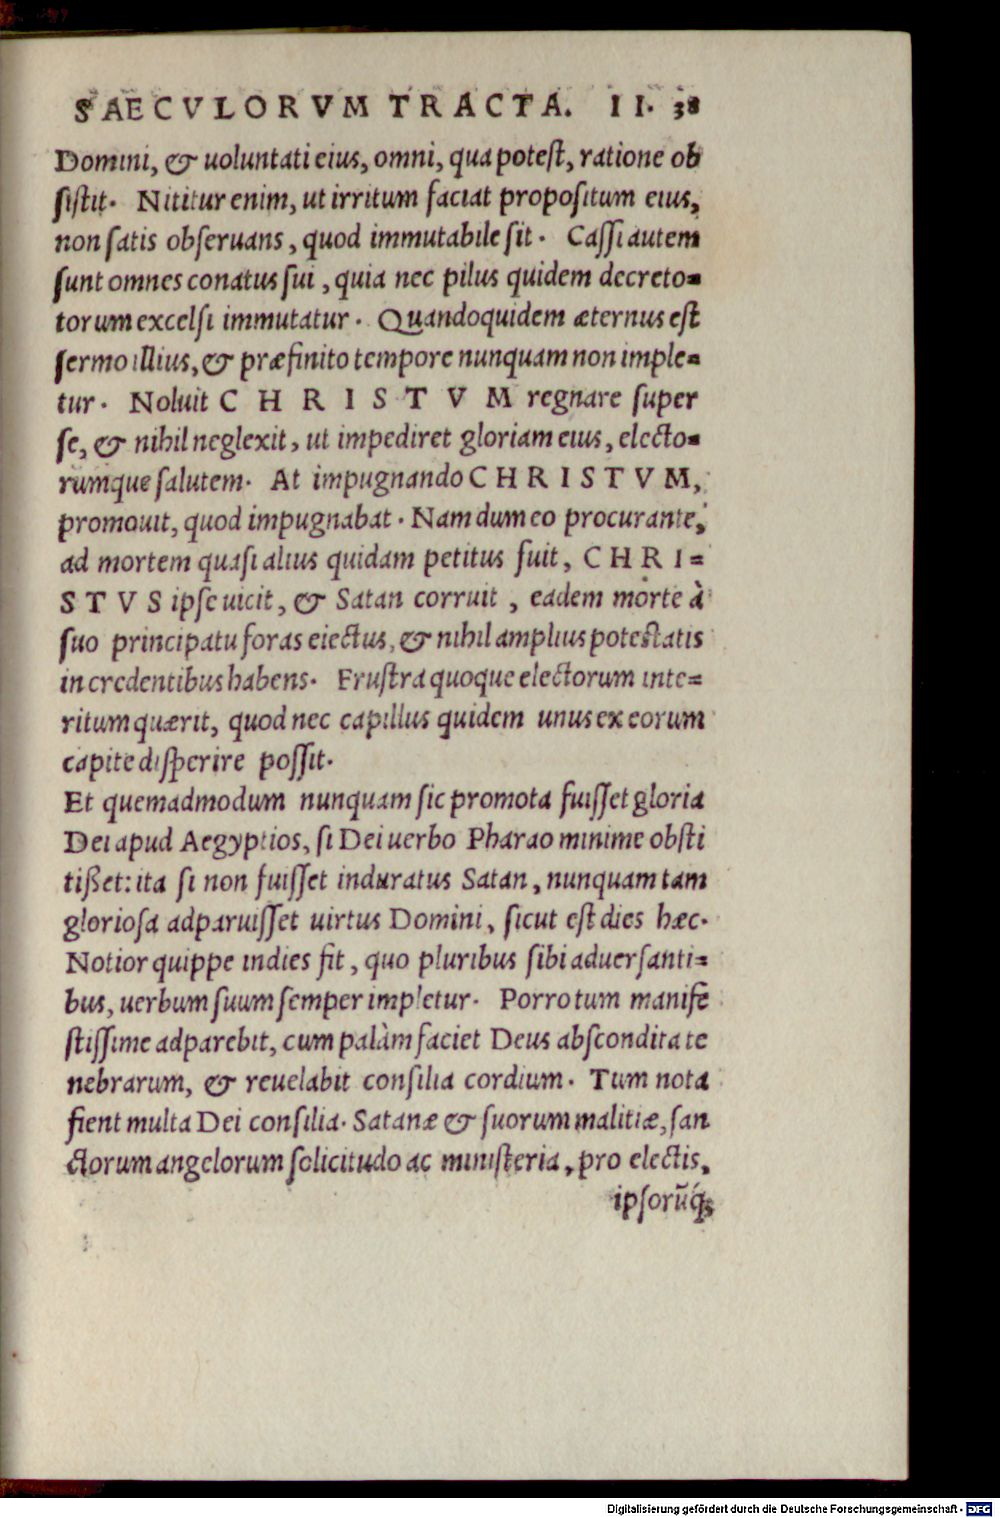 SAECVLORVM TRACTA. II. 38
Domini, & uoluntati eius, omni, qua potest, ratione ob
sistit. Nititur enim, ut irritum faciat propositum eius,
non satis obseruans, quod immutabile sit. Cassi autem
sunt omnes conatus sui, quia nec pilus quidem decreto=
torum excelsi immutatur. Quandoquidem æternus est
sermo illius, & præfinito tempore nunquam non imple=
tur. Noluit CHRISTVM regnare super
se, & nihil neglexit, ut impediret gloriam eius, electo=
rumque salutem. At impugnando CHRISTVM,
promouit, quod impugnabat. Nam dum eo procurante,
ad mortem quasi alius quidam petitus fuit, CHRI=
STVS ipse uicit, & Satan corruit, eadem morte à
suo principatu foras eiectus, & nihil amplius potestatis
in credentibus habens. Frustra quoque electorum inte=
ritum quærit, quod nec capillus quidem unus ex eorum
capite disperire possit.
Et quemadmodum nunquam sic promota fuisset gloria
Dei apud Aegyptios, si Dei uerbo Pharao minime obsti
tißet: ita si non fuisset induratus Satan, nunquam tam
gloriosa adparuisset uirtus Domini, sicut est dies hæc.
Notior quippe indies fit, quo pluribus sibi aduersanti=
bus, uerbum suum semper impletur. Porro tum manife
stissime adparebit, cum palàm faciet Deus abscondita te
nebrarum, & reuelabit consilia cordium. Tum nota
fient multa Dei consilia. Satanæ & suorum malitiæ, san
ctorum angelorum solicitudo ac ministeria, pro electis,
ipsorũq́;
Digitalisierung gefördert durch die Deutsche Forschungsgemeinschaft - DFG